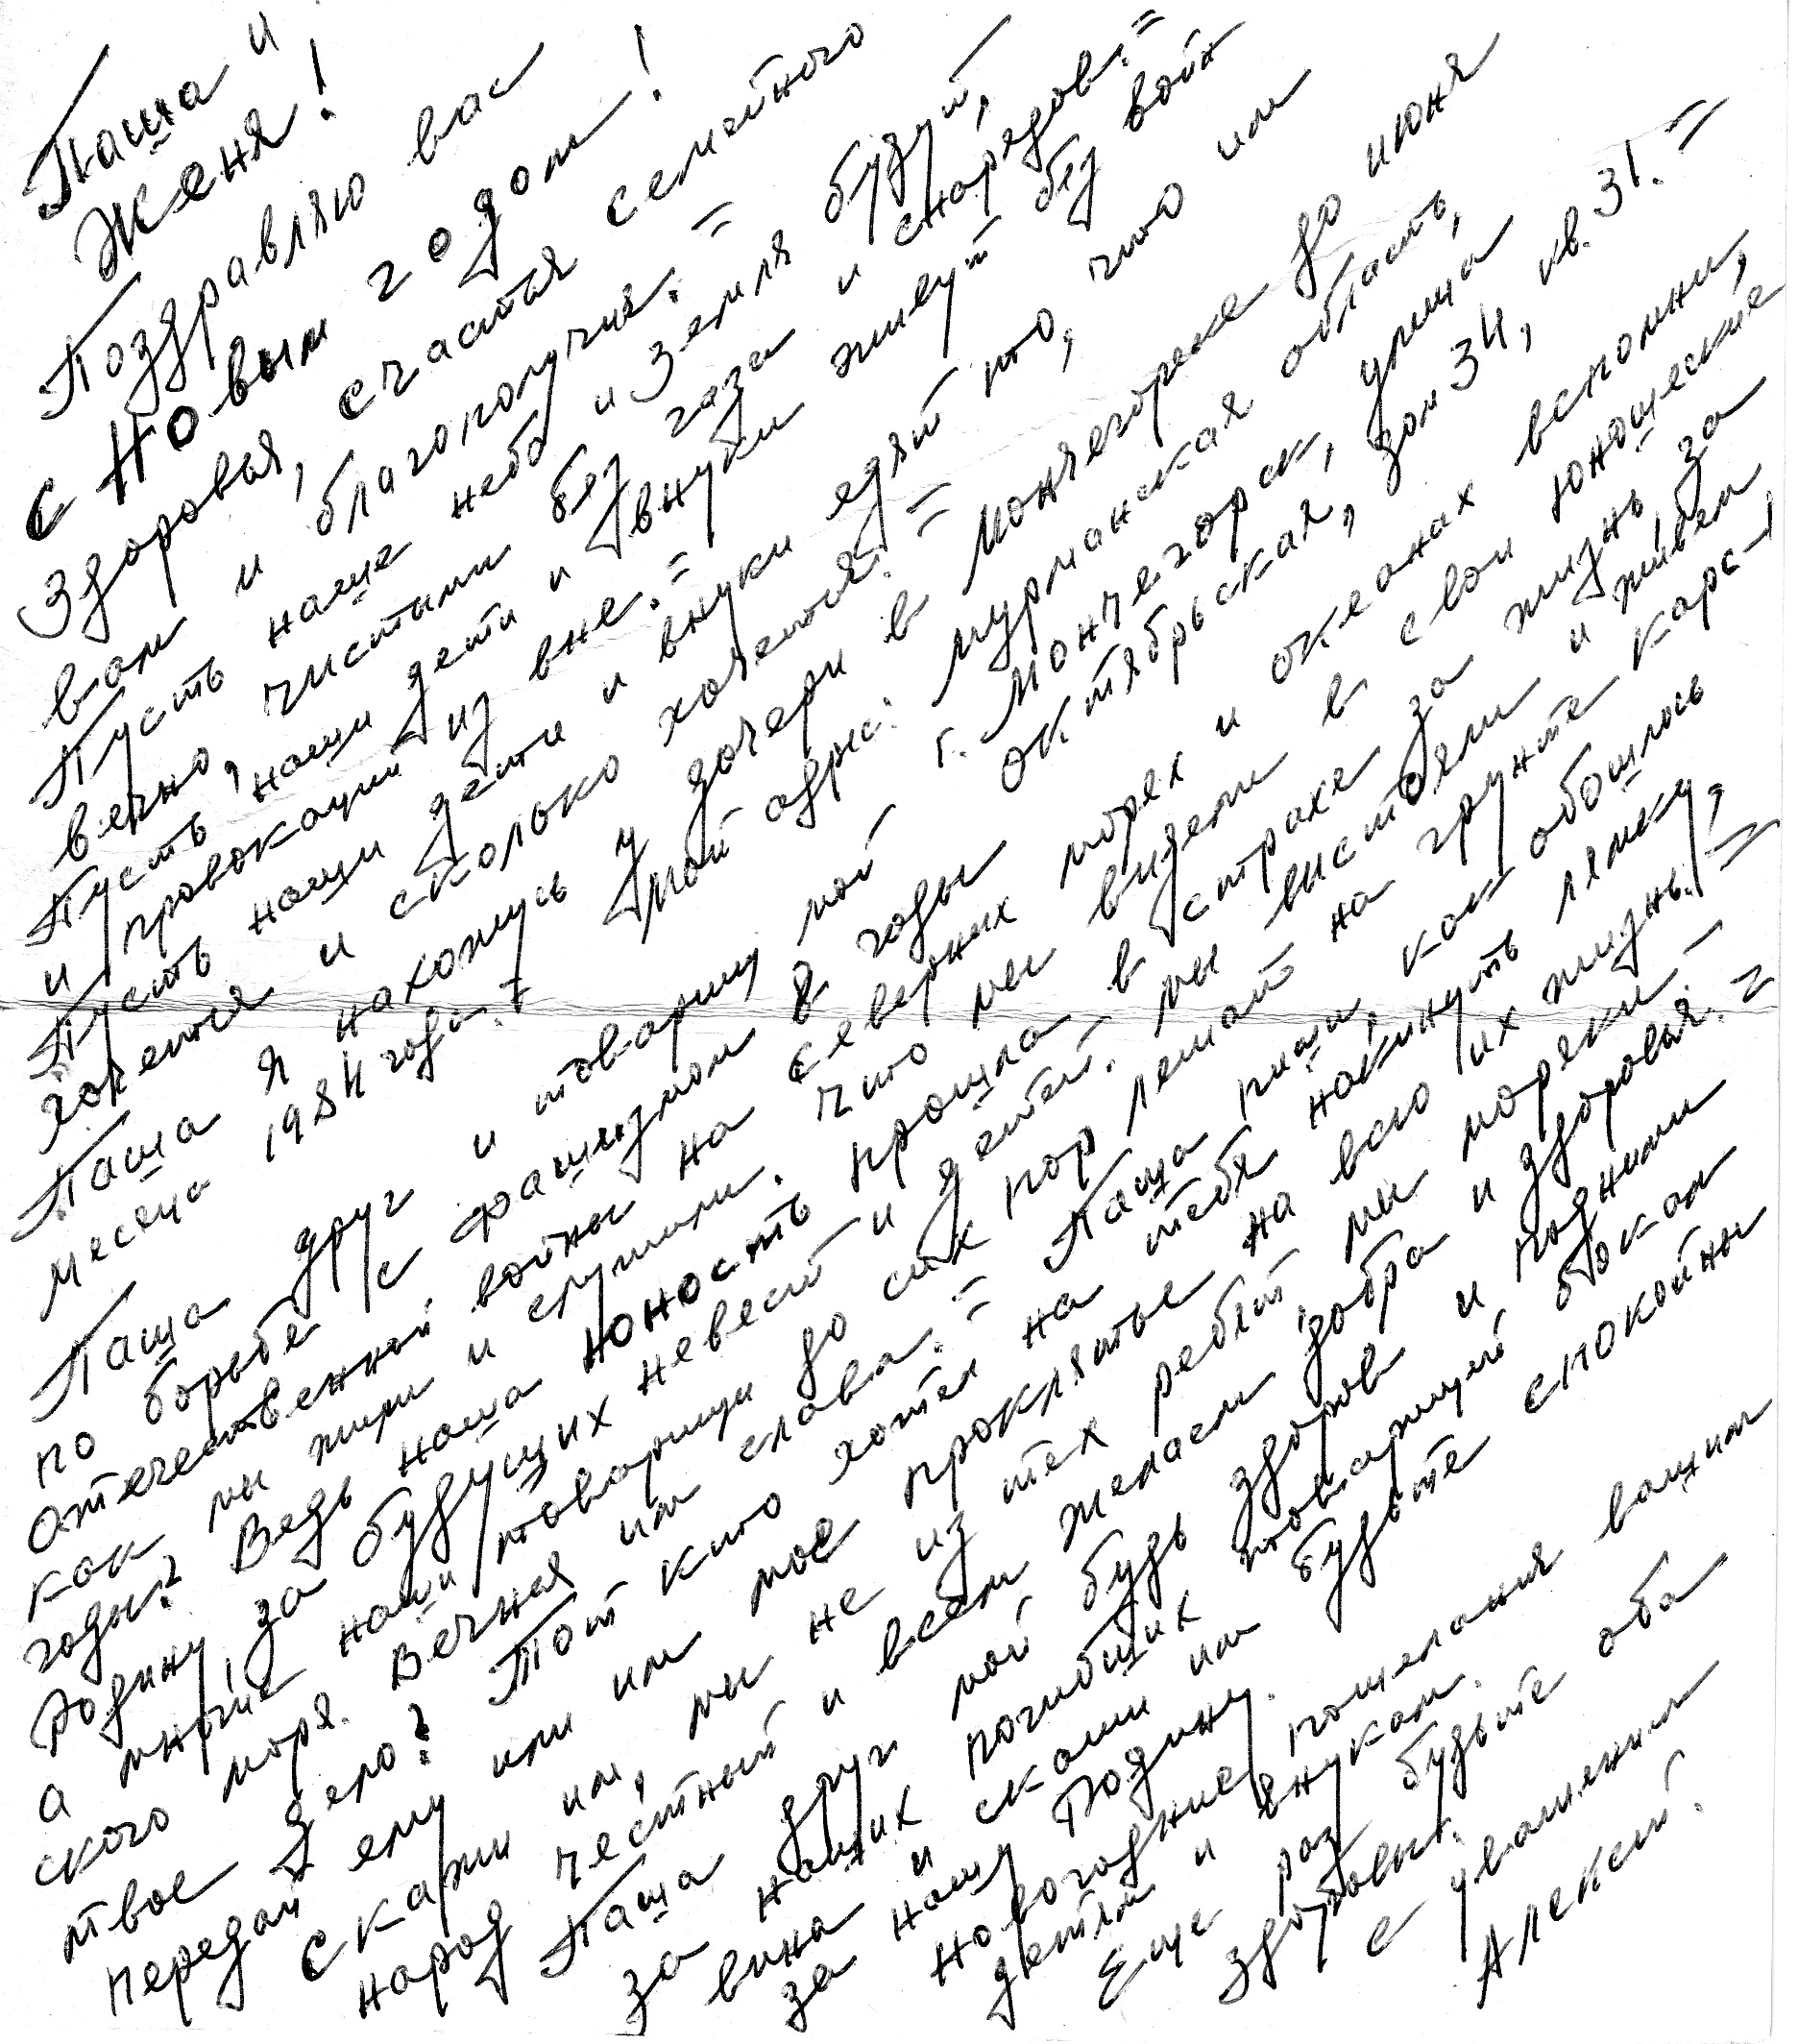 Паша и
Женя!
Поздравляю вас
с Новым годом!
Здоровья, счастья семейного
вам и благополучия. =
Пусть наше небо и Земля будут,
вечно, чистыми без газа и снарядов. =
Пусть наши дети и внуки живут без войн
и провокаций из вне. =
Пусть наши дети и внуки едят то, что им
хочется и сколько хочется. =
Паша я нахожусь у дочери в Мончегорске до июня
месяца 1984 года. = Мой адрес: Мурманская область,
г. Мончегорск, улица
Октябрьская, дом 34, кв. 31. =
Паша друг и товарищ мой
по борьбе с фашизмом в годы
отечественной войны на северных морях и океанах вспомни,
как мы жили и служили. Что мы видели в свои юношеские
годы? Ведь наша юность прошла в страхе за жизнь за
Родину, за будущих невест и детей. Мы выстояли и живем
а многие наши товарищи до сих пор лежат на грунте Карс-
ского моря. Вечная им слава. = Паша пиши, как обошлось
твое дело? Тот кто хотел на тебя накинуть лямку,
передай ему или им мое проклятье на всю их жизнь. =
Скажи им, мы не из тех ребят мы моряки –
народ честный и всем желаем добра и здоровья. =
Паша друг мой будь здоров и подними
за наших погибших товарищей бокал
вина и скажи им будьте спокойны
за нашу Родину.
Новогодние пожелания вашим
детям и внукам.
Еще раз будьте оба
здоровы.
с уважением
Алексей.